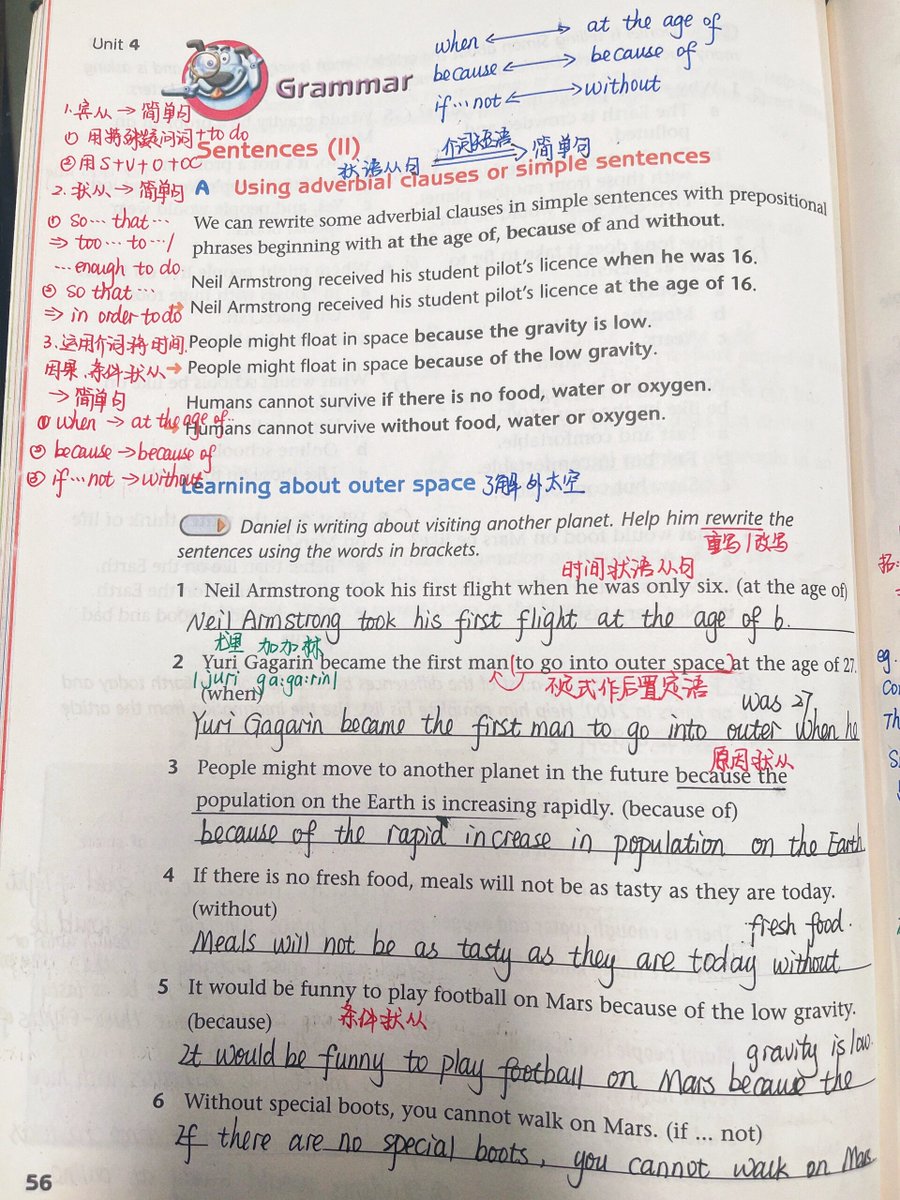 Unit 4
Grammar
when ←→ at the age of
because ←→ because of
if…not ←→ without
1.宾从→简单句
① 用特殊疑问词+to do
②用S+V+O+OC
2.状从→简单句
① so…that…
⇒ too…to…/
…enough to do.
② so that…
⇒ in order to do
3.运用介词将时间.
因果.条件状从
→简单句
① when → at the age of…
② because → because of
③ if…not → without
Sentences (II)
状语从句 介词短语 简单句
A Using adverbial clauses or simple sentences
We can rewrite some adverbial clauses in simple sentences with prepositional
phrases beginning with at the age of, because of and without.
Neil Armstrong received his student pilot's licence when he was 16.
→ Neil Armstrong received his student pilot's licence at the age of 16.
People might float in space because the gravity is low.
→ People might float in space because of the low gravity.
Humans cannot survive if there is no food, water or oxygen.
→ Humans cannot survive without food, water or oxygen.
Learning about outer space 了解外太空
Daniel is writing about visiting another planet. Help him rewrite the
重写/改写
sentences using the words in brackets.
时间状语从句
1 Neil Armstrong took his first flight when he was only six. (at the age of)
Neil Armstrong took his first flight at the age of 6.
尤里 加加林
2 Yuri Gagarin became the first man (to go into outer space) at the age of 27.
/juri ga:ga:rin/ 不定式作后置定语
(when)
was 27.
Yuri Gagarin became the first man to go into outer when he
原因状从
3 People might move to another planet in the future because the
population on the Earth is increasing rapidly. (because of)
because of the rapid increase in population on the Earth.
4 If there is no fresh food, meals will not be as tasty as they are today.
(without)
fresh food.
Meals will not be as tasty as they are today without
5 It would be funny to play football on Mars because of the low gravity.
(because) 条件状从
gravity is low.
It would be funny to play football on Mars because the
6 Without special boots, you cannot walk on Mars. (if ... not)
If there are no special boots, you cannot walk on Mars.
56
eg.